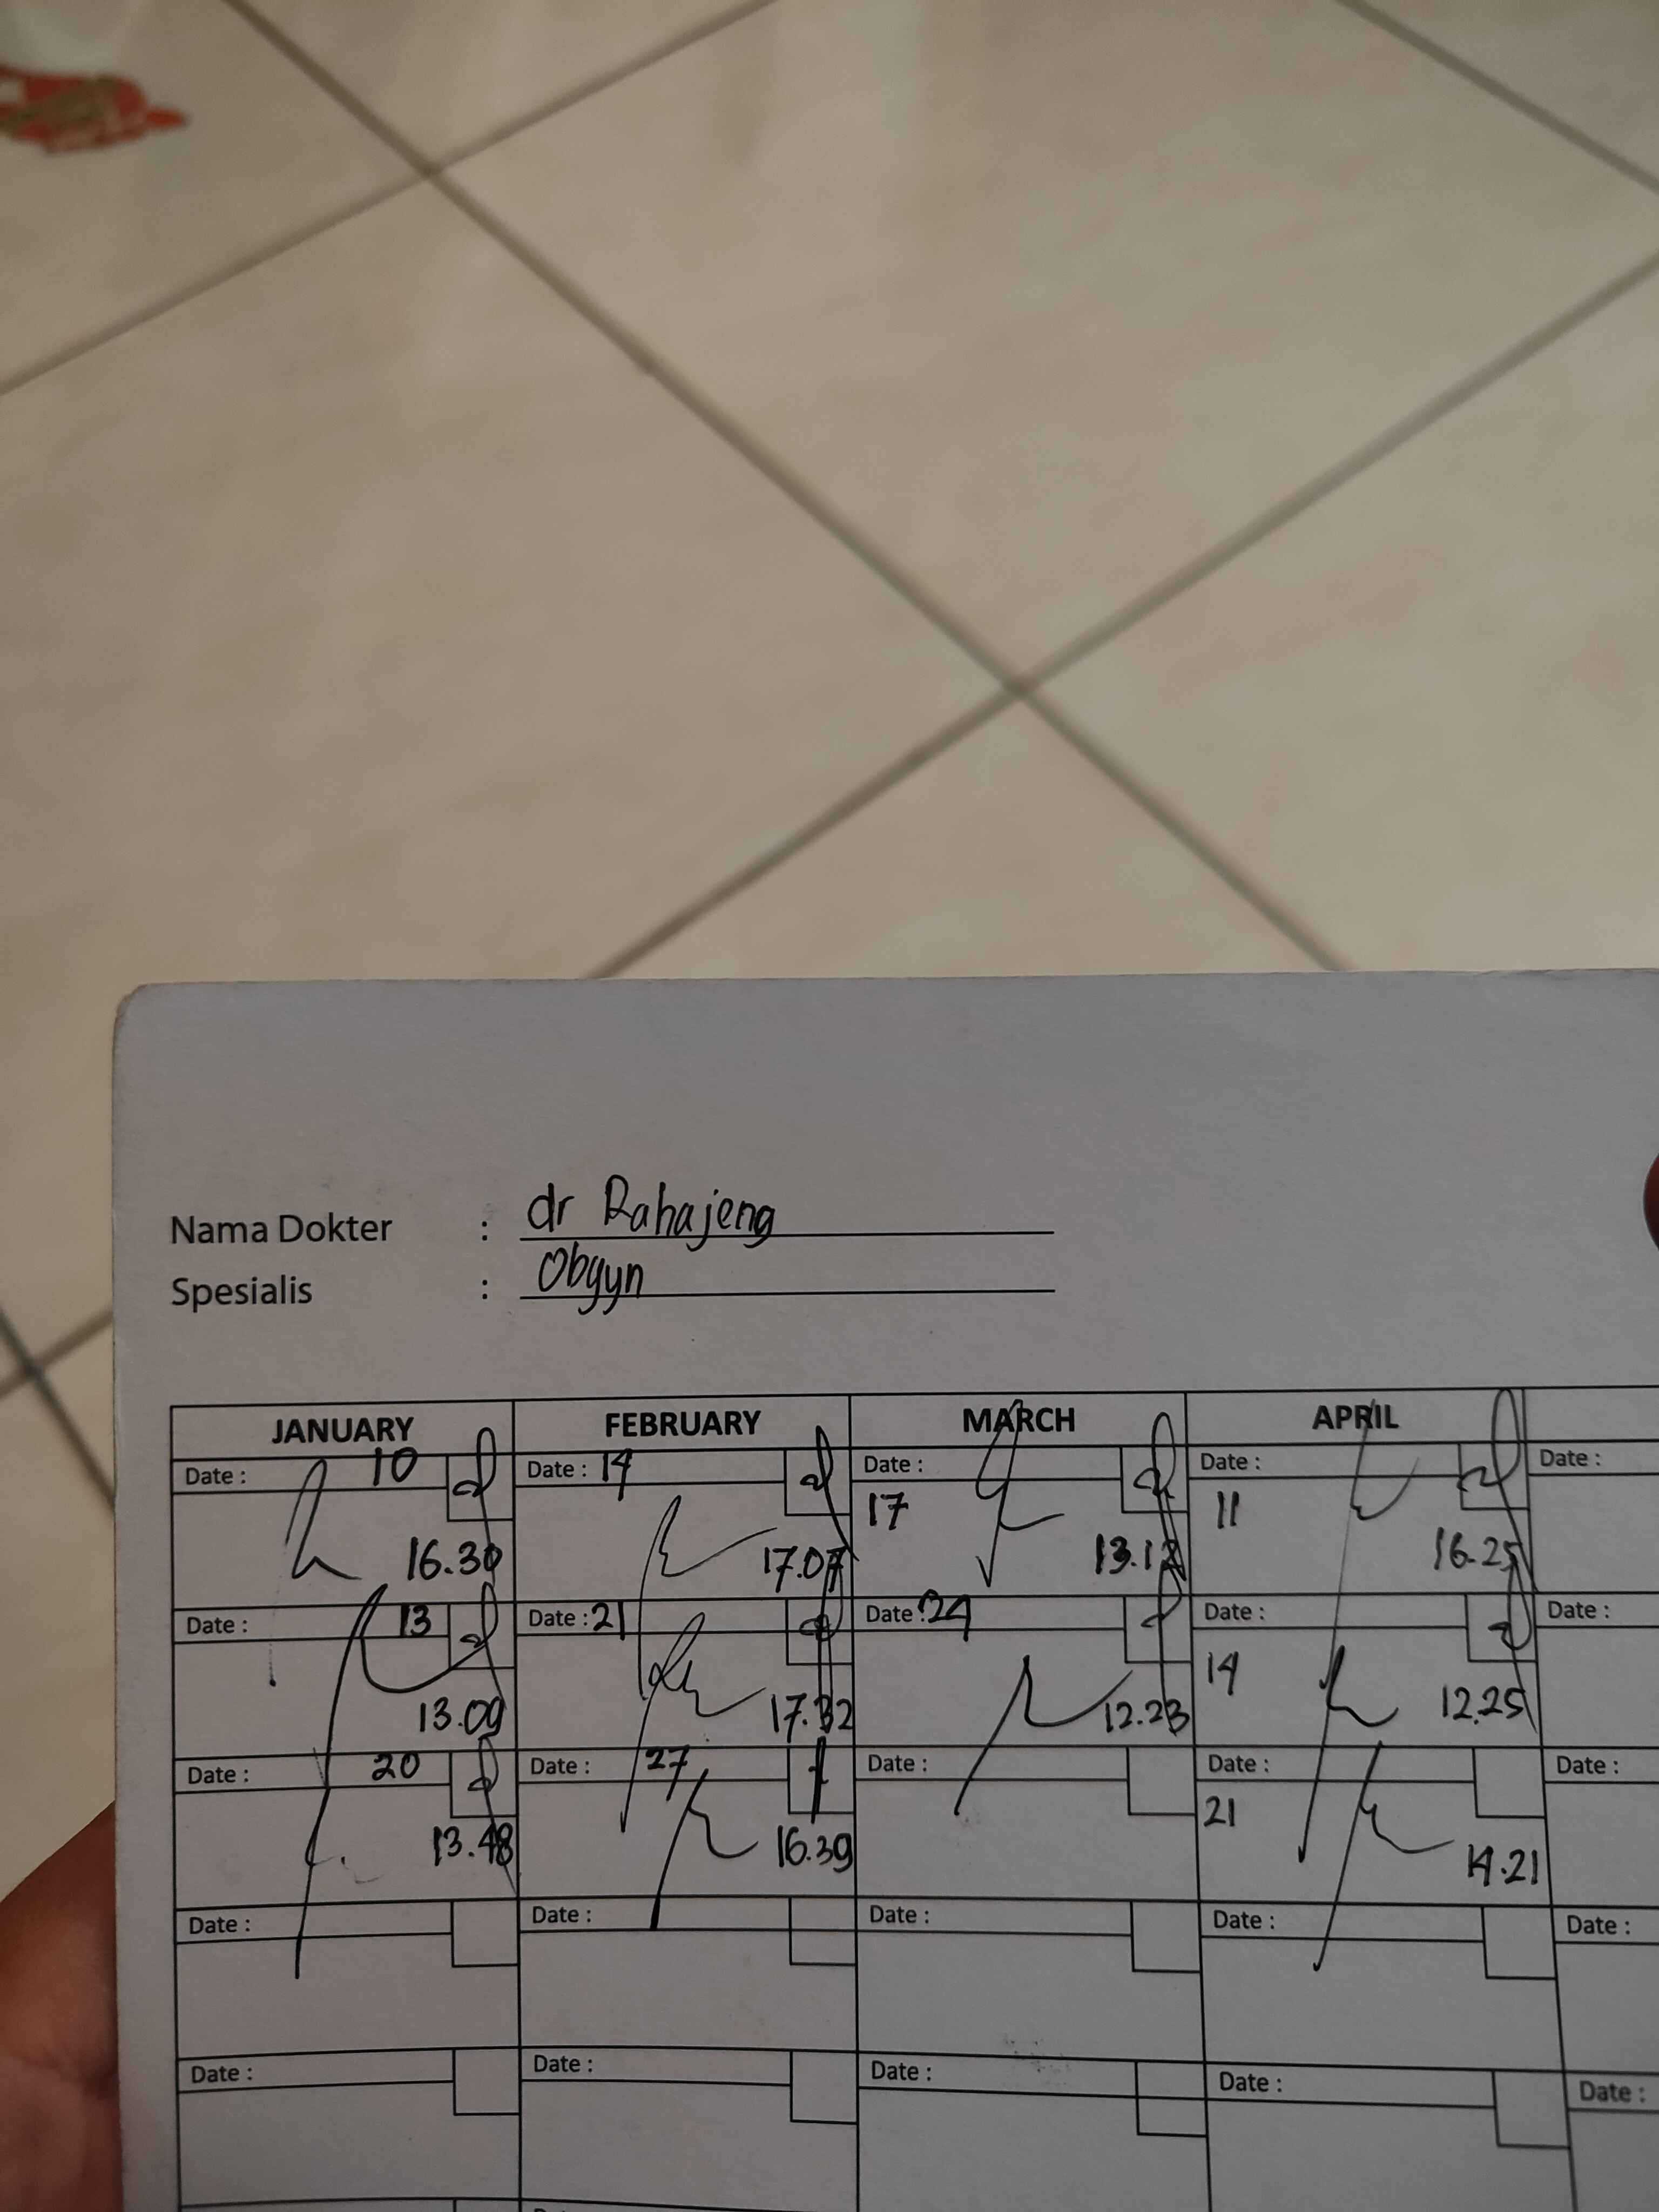 Nama Dokter : dr Rahajeng
Spesialis : Obgyn
JANUARY FEBRUARY MARCH APRIL
Date : 10 Date : 14 Date : Date : Date :
17 11
16.30 17.07 13.12 16.25
Date : 13 Date : 21 Date : 24 Date : Date :
14
13.09 17.32 12.23 12.25
Date : 20 Date : 27 Date : Date : Date :
21
13.48 16.39 14.21
Date : Date : Date : Date : Date :
Date : Date : Date : Date : Date :